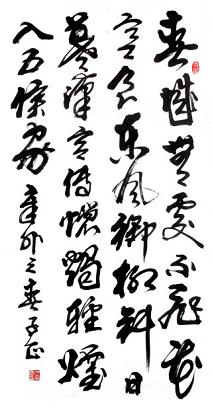 春城無處不飛花
寒食東風御柳斜日
暮漢宮傳蠟燭輕煙
入五侯家 辛卯之春子正